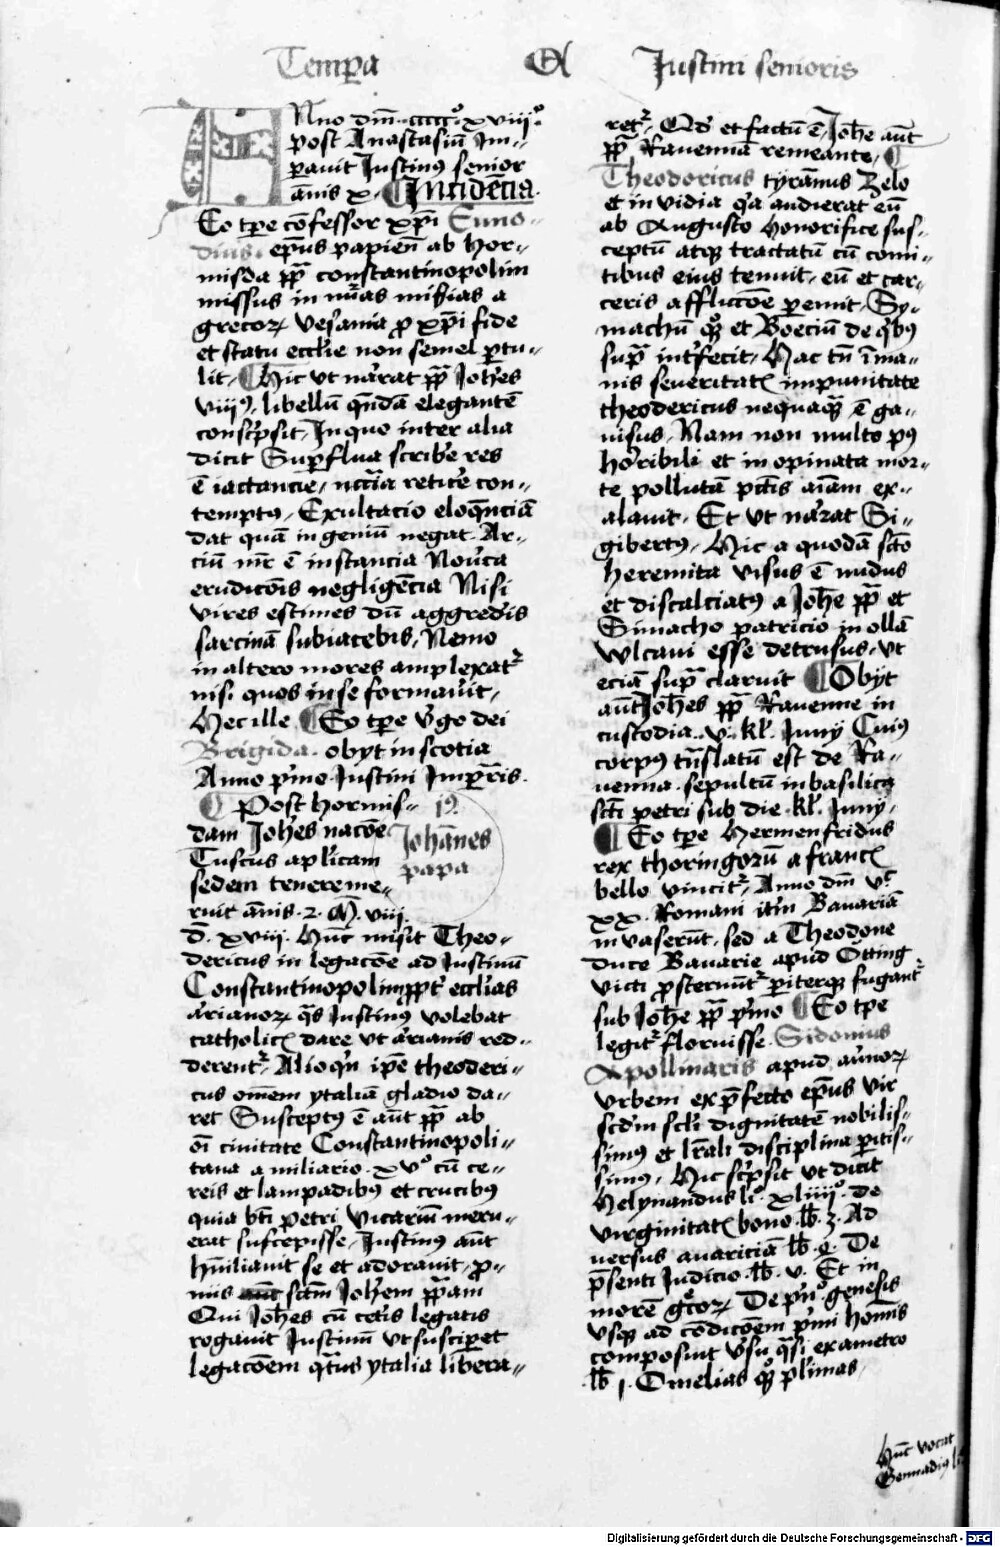 Tempa Justini senioris
Nno dm̄ ccccc° xviij°
post Anastasiū Im-
pavit Justin9 senior
ānis x. Incidēcia.
Eo tpe cōfessor xp̄i Enno-
dius. ep̄us papien̄ ab hor-
misda pp̄ constantinopolim
missus in
grecoꝝ vesania p xp̄i fide
et statu ecclīe non semel ptu-
lit. Hic ut narrat pp̄ Joh̄es
viij9. libellū qndā elegantē
conscpsit. In quo inter alia
dicit Supflua scribe res
ē iactancie, retice con-
temptꝰ. Exultacio eloquencia
dat quā ingeniū negat. Ar-
ciū mr̄ ē instancia Noverca
erudicōis negligēcia Nisi
vires estimes dū aggredis
sarcinā subiacebis. Nemo
in altero mores amplexat
nisi quos in se formavit.
Hec ille Eo tpe vgo dei
Brigida. obyt in scotia
Anno pmo Justini Impris.
Post hormis-
dam Joh̄es nacōe
Tuscus aplicam
sedem tenere me-
ruit ānis. 2. M. viij.
Johānes
papa
D. xviij. Hūc misit Theo-
dericus in legacōe ad Justinū
Constantinopolim ppt ecclīas
arianoꝝ qs Justinꝰ volebat
catholicꝭ dare ut arianis red-
derent. Alioqn ipe theoderi-
cus omēm ytaliā gladio da-
ret Susceptꝰ ē aūt pp̄ ab
oī civitate Constantinopoli-
tana a miliario. xv° cū ce-
reis et lampadibꝰ et crucibꝰ
quia bti petri vicariū meru-
erat suscepisse. Justinꝰ aūt
humiliavit se et adoravit p-
nus sctm Joh̄em pp̄am
Qui Joh̄es cū cetis legatis
rogavit Justinū ut susciperet
legacōem qtus ytalia libera-
ret. Qd et factū ē, Joh̄e aūt
pp̄ Ravennā remeante.
Theodoricus tyrānus zelo
et invidia qa audierat eū
ab Augusto honorifice sus-
ceptū atqꝫ tractatū cū comi-
tibus eius tenuit. eū et car-
ceris afflictōe pemit. Sy-
machū qꝫ et Boeciū de qbꝰ
sup̄ intfecit. Hac tn̄ īma-
nis severitatꝭ impunitate
theodericus nequaqꝫ ē ga-
visus. Nam non multo pꝰ
horribili et inopinata mor-
te pollutā pctis aīam ex-
alavit. Et ut narrat Si-
gibertꝰ. Hic a quodā scto
heremita visus ē nudus
et discalciatꝰ a Joh̄e pp̄ et
Simacho patricio in ollā
wlcani esse detrusus. ut
eciā sup̄ claruit Obyt
aūt Joh̄es pp̄ Ravenne in
custodia. v. kl. Juny Cuiꝰ
corpꝰ tnslatū est de Ra-
venna. sepultū in basilica
scti petri sub die. kl. Juny.
Eo tpe Hermenfridus
rex thoringorū a francꝭ
bello vincit. Anno dm̄ vc
xx. Romani itm Bavariā
invaserūt. sed a Theodone
duce Bavarie apud Otting
victi psternūt piterqꝫ fugant
sub Joh̄e pp̄ pmo Eo tpe
legit floruisse. Sidonius
Apollinaris apud
Urbem ex pfecto ep̄us vir
scdm scli dignitatē nobilis-
simꝰ et disciplina pitis-
simꝰ. Hic scpsit ut dicit
Helynandus li° xliiij° de
virginitatꝭ bono. lb. 3. Ad
versus avariciā lb. De
psenti Judicio. lb. v. Et in
morē De pn° genesis
usqꝫ ad cōdicōem pmi homis
composuit vsu qsi exametro
lb j. Omelias qꝫ plimas.
Hūc vocat
Gennadiꝰ
Digitalisierung gefördert durch die Deutsche Forschungsgemeinschaft - DFG